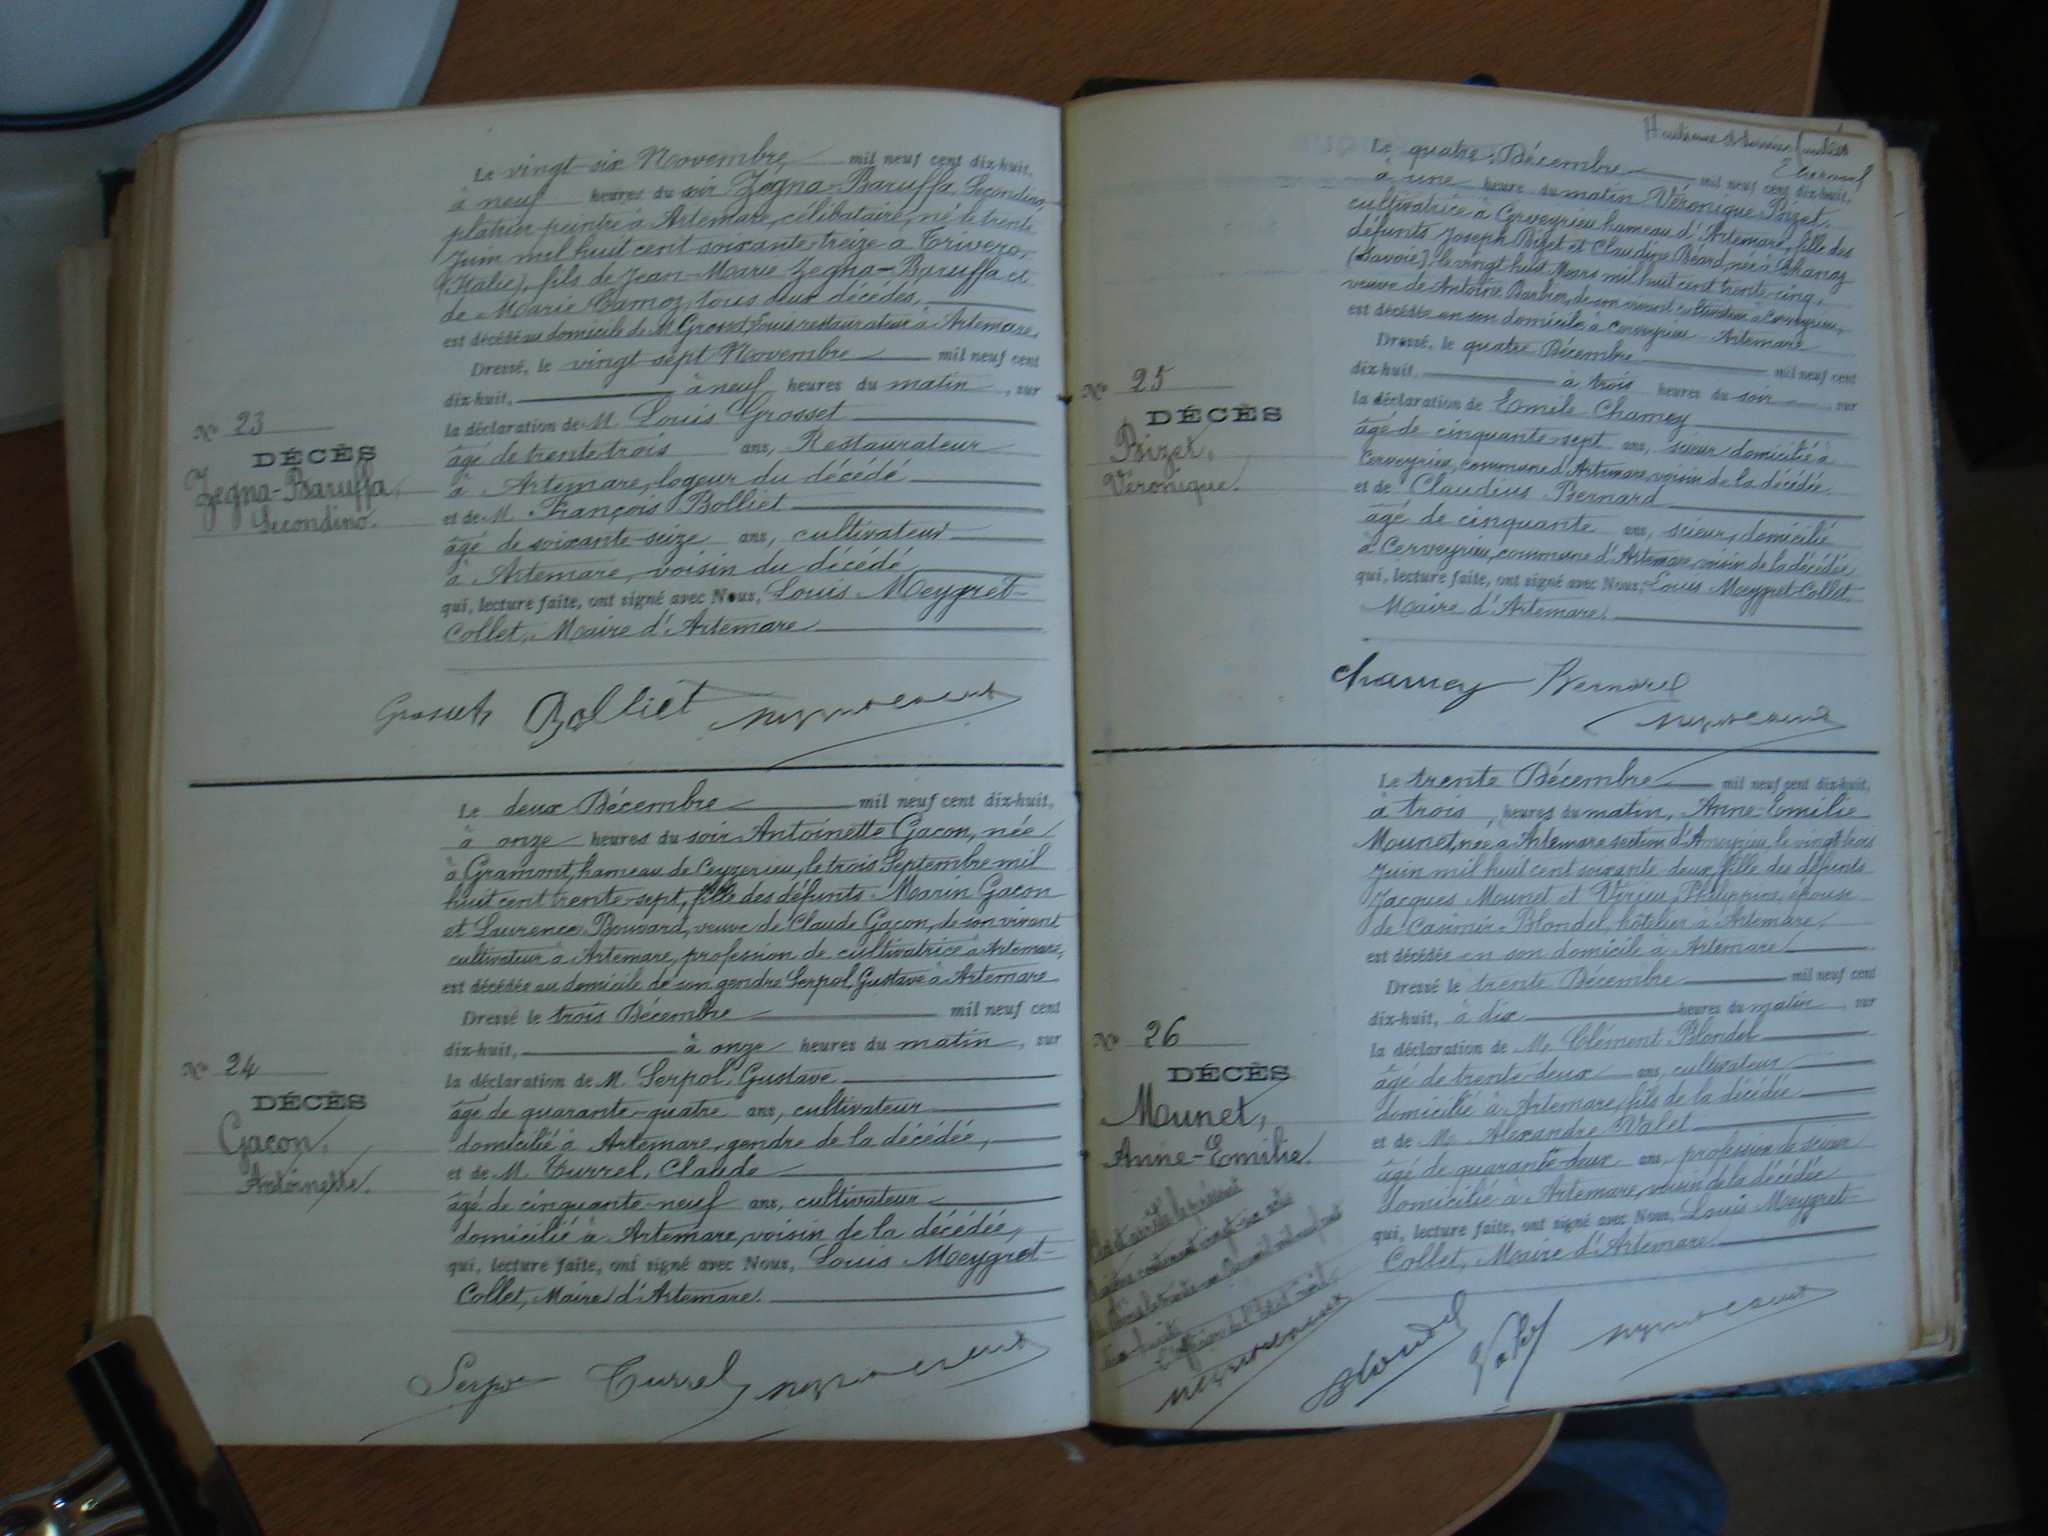 Le vingt-six Novembre mil neuf cent dix-huit,
à neuf heures du soir Zegna-Baruffa, Secondino,
plâtrier peintre à Artemare, célibataire, né le trente
Juin mil huit cent soixante-treize à Trivero,
(Italie), fils de Jean-Marie Zegna-Baruffa et
de Marie tous deux décédés,
est décédé au domicile de M. Louis restaurateur à Artemare,
Dressé, le vingt sept Novembre mil neuf cent
dix-huit, à neuf heures du matin, sur
la déclaration de M. Louis Grosset
âgé de trente trois ans, Restaurateur
à Artemare, logeur du décédé
et de M. François Bolliet
âgé de soixante-seize ans, cultivateur
à Artemare, voisin du décédé
qui, lecture faite, ont signé avec Nous, Louis Meygret-
Collet, Maire d'Artemare
No 23
DÉCÈS
Zegna-Baruffa,
Secondino.
Bolliet
Le deux Décembre mil neuf cent dix-huit,
à onze heures du soir Antoinette Gacon, née
à Gramont, hameau de Ceyzerieu, le trois Septembre mil
huit cent trente-sept, fille des défunts Marin Gacon
et Laurence Bouvard, veuve de Claude Gacon, de son vivant
cultivateur à Artemare, profession de cultivatrice à Artemare,
est décédée au domicile de son gendre Serpol Gustave à Artemare
Dressé le trois Décembre mil neuf cent
dix-huit, à onze heures du matin, sur
la déclaration de M. Serpol, Gustave
âgé de quarante-quatre ans, cultivateur
domicilié à Artemare, gendre de la décédée,
et de M. Turrel, Claude
âgé de cinquante-neuf ans, cultivateur
domicilié à Artemare, voisin de la décédée,
qui, lecture faite, ont signé avec Nous, Louis Meygret-
Collet, Maire d'Artemare.
No 24
DÉCÈS
Gacon,
Antoinette.
Serpol Turrel
Le quatre Décembre mil neuf cent dix-huit,
à une heure du matin Véronique Bizet,
cultivatrice à Cerveyrieu hameau d'Artemare, fille des
défunts Joseph Bizet et Claudine Béard, née à Chanaz
(Savoie), le vingt huit Mars mil huit cent trente-cinq,
veuve de Antoine Barbin, de son vivant cultivateur à Cerveyrieu,
est décédée en son domicile à Cerveyrieu - Artemare
Dressé, le quatre Décembre mil neuf cent
dix-huit, à trois heures du soir, sur
la déclaration de Emile Chamey
âgé de cinquante-sept ans, scieur domicilié à
Cerveyrieu, commune d'Artemare, voisin de la décédée.
et de Claudius Bernard
âgé de cinquante ans, scieur, domicilié
à Cerveyrieu, commune d'Artemare, voisin de la décédée
qui, lecture faite, ont signé avec Nous, Louis Meygret-Collet,
Maire d'Artemare.
No 25
DÉCÈS
Bizet,
Véronique.
Chamey Bernard
Le trente Décembre mil neuf cent dix-huit,
à trois heures du matin, Anne-Emilie
Mounet, née à Artemare section d'Ameyrieu, le vingt trois
Juin mil huit cent soixante-deux, fille des défunts
Jacques Mounet et Virieu, Philippine, épouse
de Casimir Blondel, hôtelier à Artemare,
est décédée en son domicile à Artemare
Dressé le trente Décembre mil neuf cent
dix-huit, à dix heures du matin, sur
la déclaration de M. Clément Blondel
âgé de trente-deux ans, cultivateur
domicilié à Artemare, fils de la décédée
et de M. Alexandre Valet
âgé de quarante-deux ans, profession de scieur
domicilié à Artemare, voisin de la décédée
qui, lecture faite, ont signé avec Nous, Louis Meygret-
Collet, Maire d'Artemare
No 26
DÉCÈS
Mounet,
Anne-Emilie.
Blondel